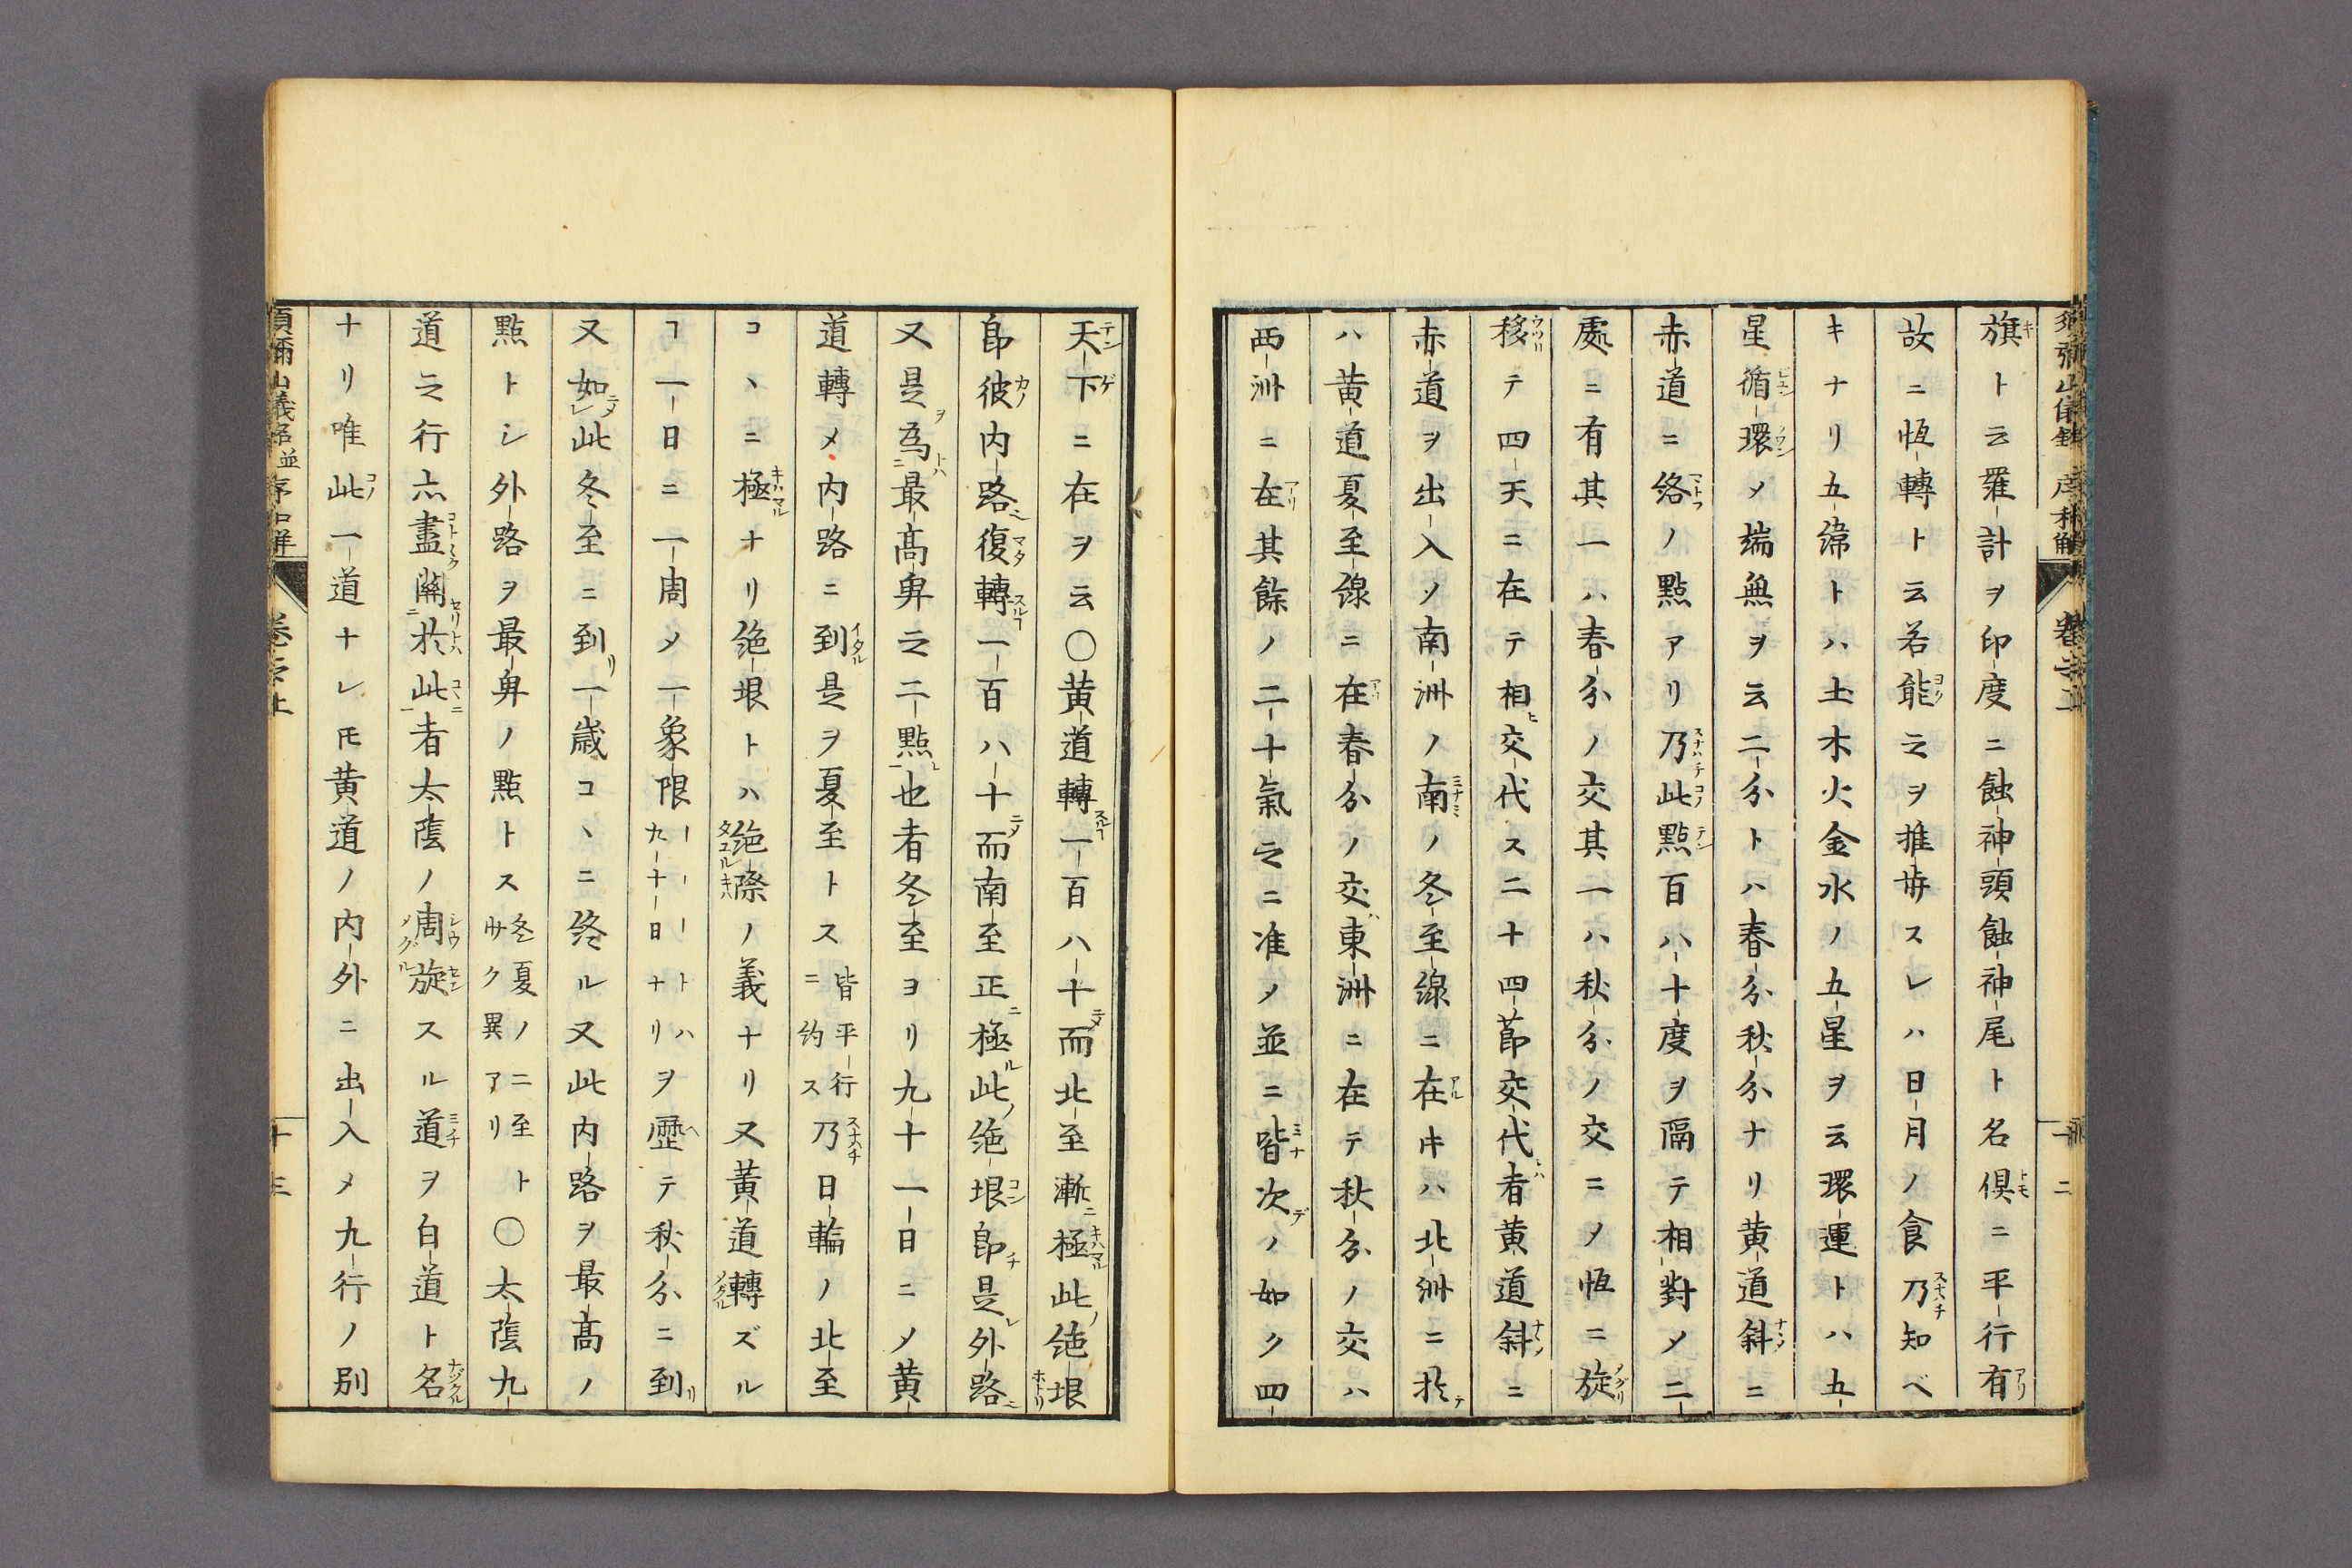 旗ト云羅計ヲ印度ニ蝕神頭蝕神尾ト名倶ニ平行有
故ニ恆轉ト云若能之ヲ推歩スレハ日月ノ食乃知ベ
キナリ五緯トハ土木火金水ノ五星ヲ云環運トハ五
星循環メ端無ヲ云二分トハ春分秋分ナリ黄道斜ニ
赤道ニ絡ノ點アリ乃此點百八十度ヲ隔テ相對メ二
處ニ有其一ハ春分ノ交其一ハ秋分ノ交ニメ恆ニ旋
移テ四天ニ在テ相交代ス二十四節交代者黄道斜ニ
赤道ヲ出入ソ南洲ノ南ノ冬至線ニ在キハ北洲ニ於
ハ黄道夏至線ニ在春分ノ交東洲ニ在テ秋分ノ交ハ
西洲ニ在其餘ノ二十氣之ニ准メ並ニ皆次ノ如ク四
天下ニ在ヲ云〇黄道轉一百八十而北至漸極此絶垠
即彼内路復轉一百八十而南至正極此絶垠即是外路
又是為最高卑之二點也者冬至ヨリ九十一日ニメ黄
道轉メ内路ニ到是ヲ夏至トス皆平行ニ約ス乃日輪ノ北至
コヽニ極ナリ絶垠トハ絶際ノ義ナリ又黄道轉ズル
ヿ一日ニ一周メ一象限九十日ナリトハヲ歴テ秋分ニ到
又如此冬至ニ到一歳コヽニ終ル又此内路ヲ最高ノ
點トシ外路ヲ最卑ノ點トス冬夏ノ二至ト異アリ〇太陰九
道之行亦盡關於此者太陰ノ周旋スル道ヲ白道ト名
ナリ唯此一道ナレ𪜈黄道ノ内外ニ出入メ九行ノ別
須彌山儀銘並序和解 巻之上 十三